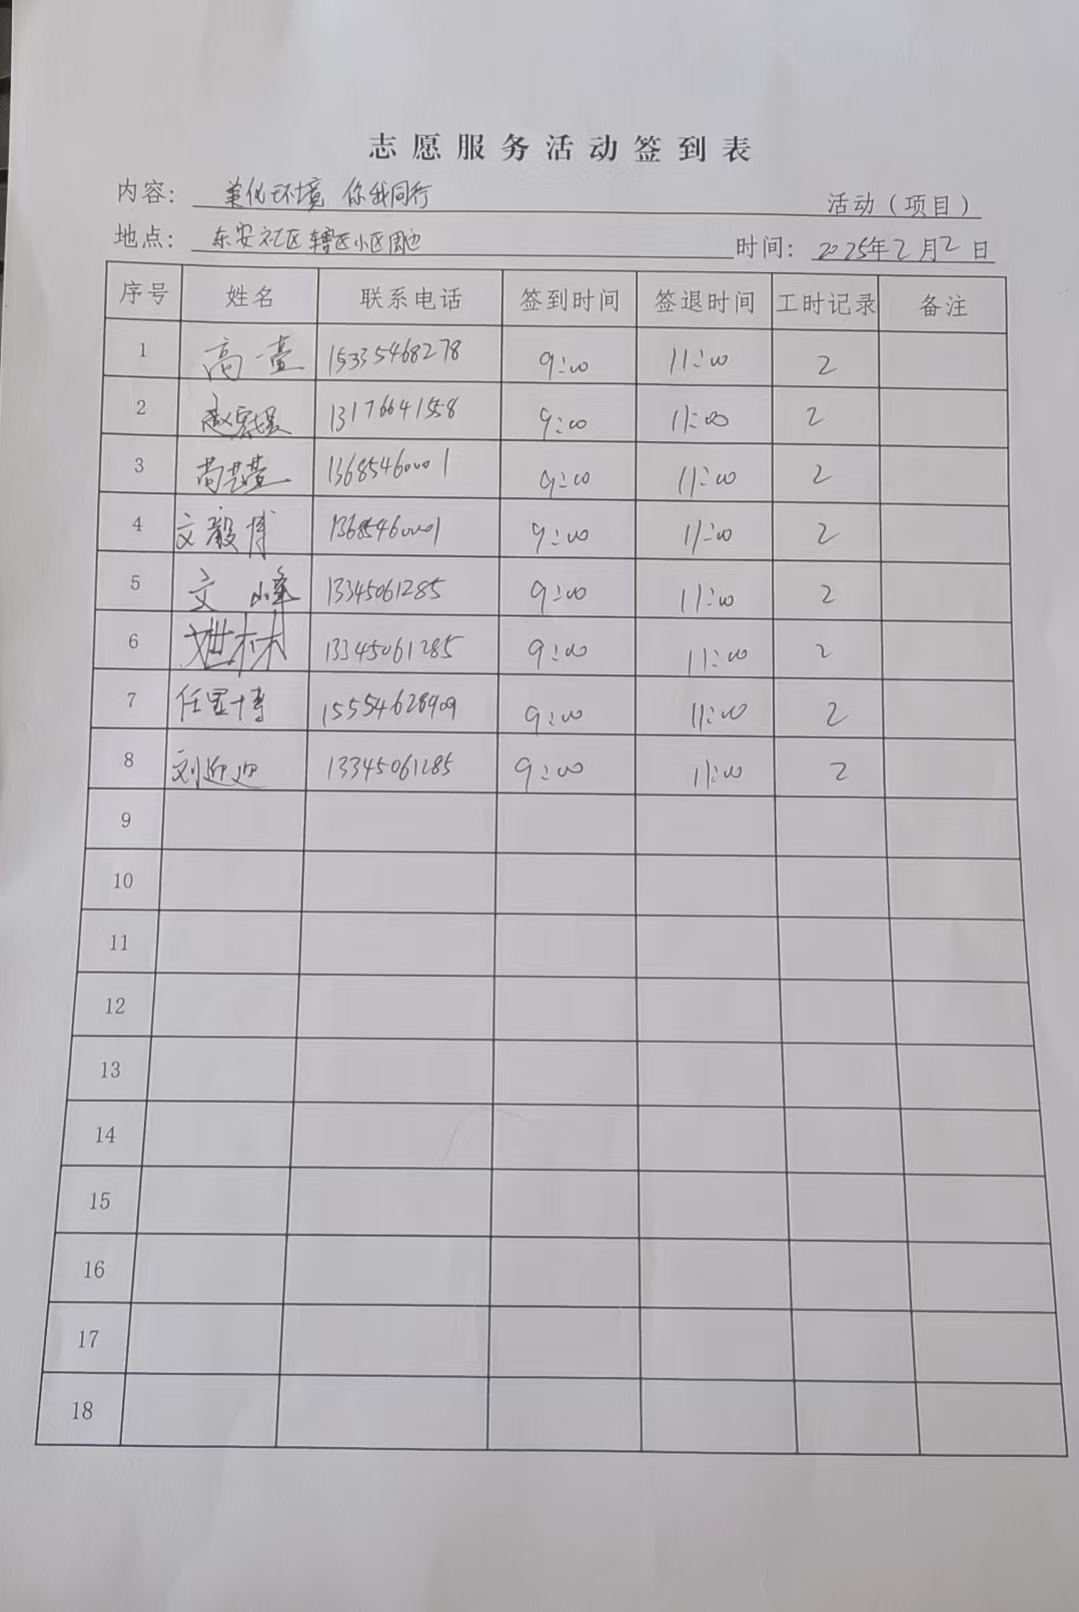 志愿服务活动签到表
内容： 美化环境 你我同行 活动（项目）
地点： 东安社区辖区小区周边 时间： 2025年2月2日
序号 姓名 联系电话 签到时间 签退时间 工时记录 备注
1 高 15335468278 9:00 11:00 2
2 赵 13176641558 9:00 11:00 2
3 13685460001 9:00 11:00 2
4 文毅博 1368546001 9:00 11:00 2
5 文峰 13345061285 9:00 11:00 2
6 13345061285 9:00 11:00 2
7 任 博 15554628909 9:00 11:00 2
8 刘迎迎 13345061285 9:00 11:00 2
9
10
11
12
13
14
15
16
17
18